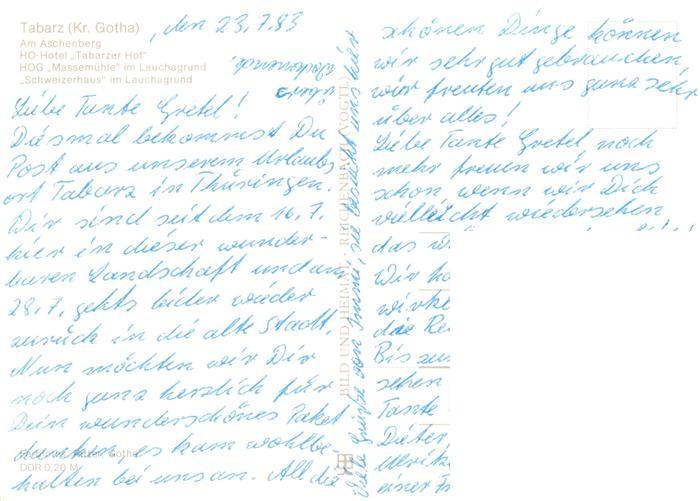 Tabarz (Kr. Gotha), den 23.7.83
Am Aschenberg
HO-Hotel „Tabarzer Hof"
HOG „Massemühle" im Lauchagrund
„Schweizerhaus" im Lauchagrund
Liebe Tante Gretel!
Diesmal bekommst Du
Post aus unserem Urlaubs
ort Tabarz in Thüringen.
Wir sind seit dem 16.7.
hier in dieser wunder-
baren Landschaft und am
28.7. gehts leider wieder
zurück in die alte Stadt.
Nun möchten wir Dir
noch ganz herzlich für
Dein wunderschönes Paket
danken, es kam wohlbe
halten bei uns an. All die
DDR 0,20 M
BILD UND HEIMAT · REICHENBACH (VOGTL)
Viele Grüße von Immi, sie besucht uns hier
schönen Dinge können
wir sehr gut gebrauchen,
wir freuten uns ganz sehr
über alles!
Liebe Tante Gretel, noch
mehr freuen wir uns
schon wenn wir Dich
vielleicht wiedersehen
das
Wir
die Re
Bis zu
sehen
Tante
Dieter
Ulrik
einer